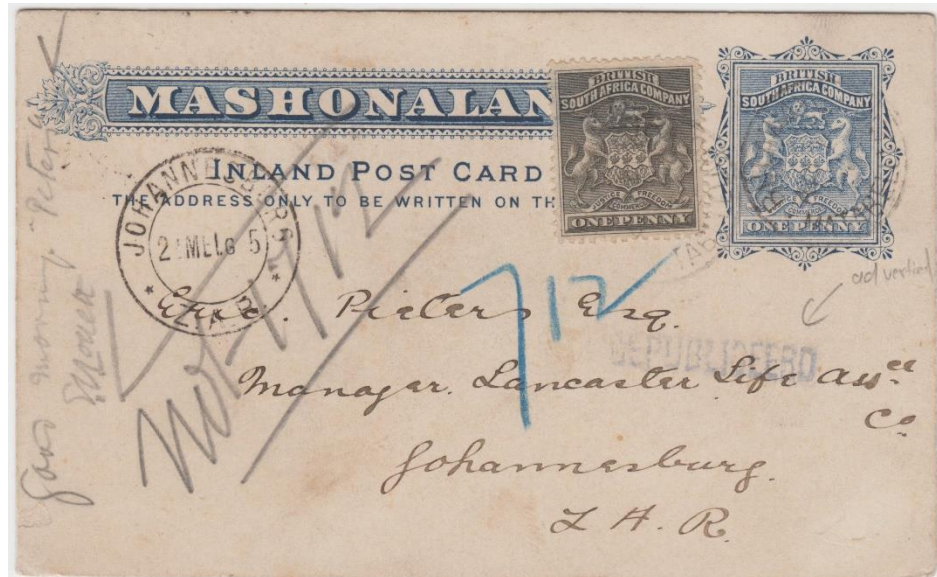 MASHONALAN
INLAND POST CARD
THE ADDRESS ONLY TO BE WRITTEN ON TH
BRITISH
SOUTH AFRICA COMPANY
JUSTICE FREEDOM
COMMERCE
ONE PENNY
BRITISH
SOUTH AFRICA COMPANY
JUSTICE FREEDOM
COMMERCE
ONE PENNY
JOHANNESBURG
Z.A.R.
Good morning "Peter"
712
Eric. Pieters Esq.
GEPUBLICEERD
Manager. Lancaster Life Assce
Co
Johannesburg.
Z A. R